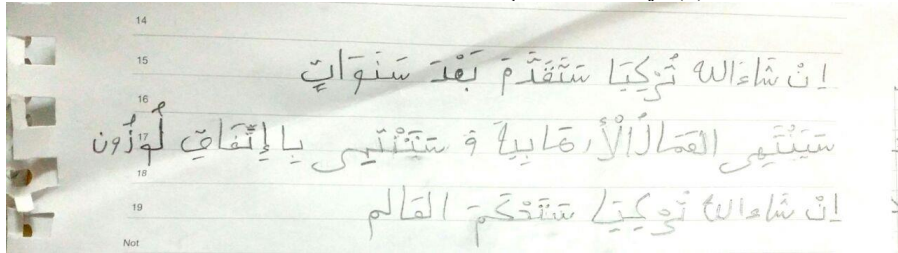 14
15
اِنْ شَاءَالله تُرْكِيَا سَتَتَقَدَّمَ بَعْدَ سَنَوَاتٍ
16
17
سَيَنْتَهِى العَمَالُ الْأِرهَابِيةَ وَ سَتَنْتَهِى بِاإِتِّفَاقِ لُوزُون
18
اِنْ شَاءالله تُرْكِيَا سَتَحْكَمَ العَالم
19
Not